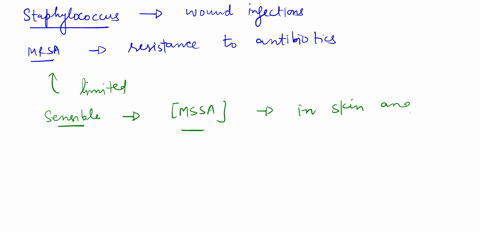 Staphylococcus → wound infections
MRSA → resistance to antibiotics
limited
Sensible → [MSSA] → in skin and